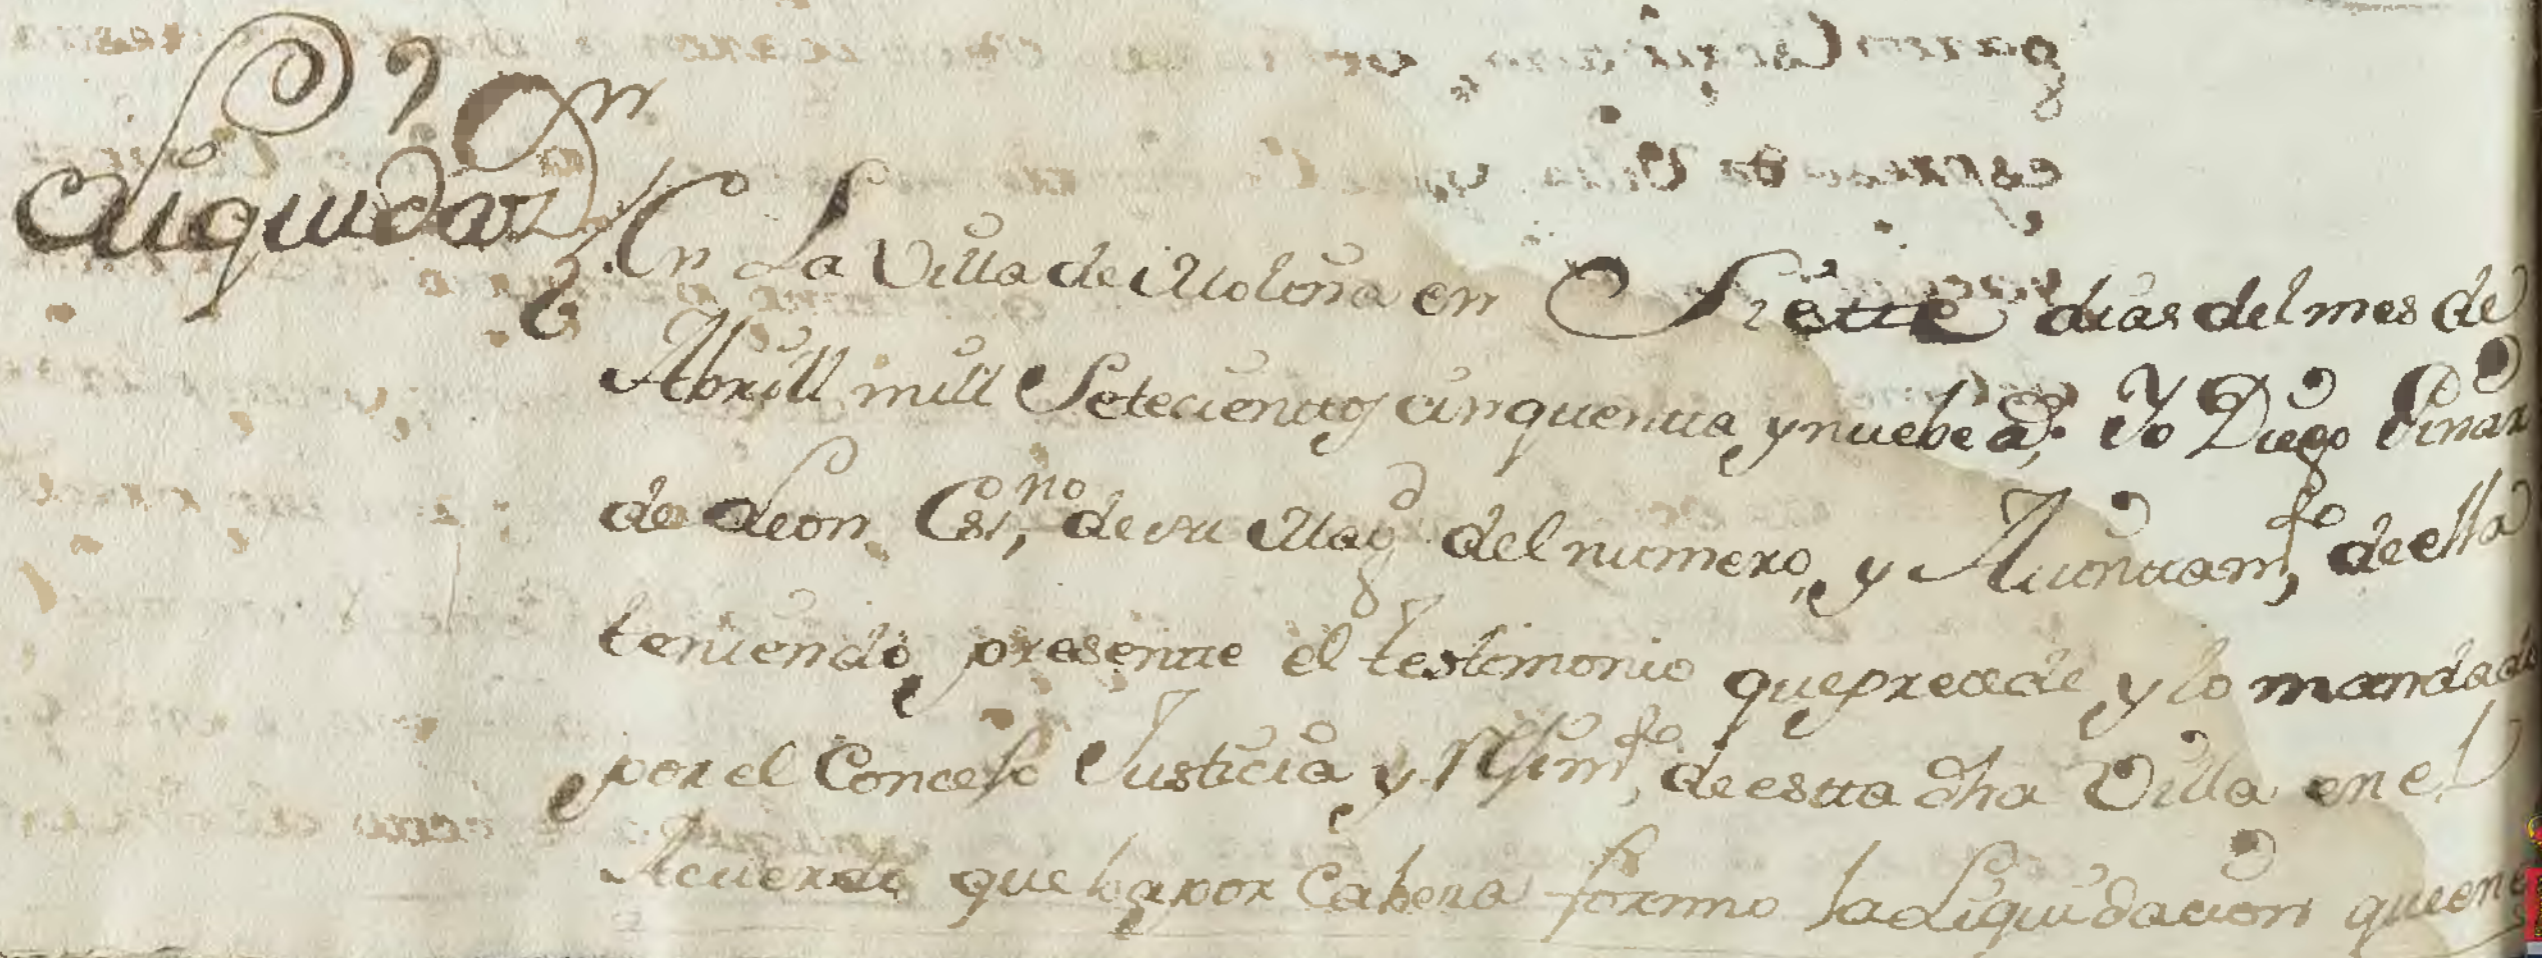 Liquidaz.on
En La Villa de Molina en Siette dias del mes de
Abrill mill Setecientos cinquenta y nuebe a.s Yo Diego Pinar
de Leon Es.no de su Mag.d del numero, y Aiuntam.to de ella
teniendo presente el testimonio que precede y lo mandado
por el Concejo Justicia y Rejim.to de esta dha Villa en el
Acuerdo que ba por Cabeza formo la Liquidacion que en e